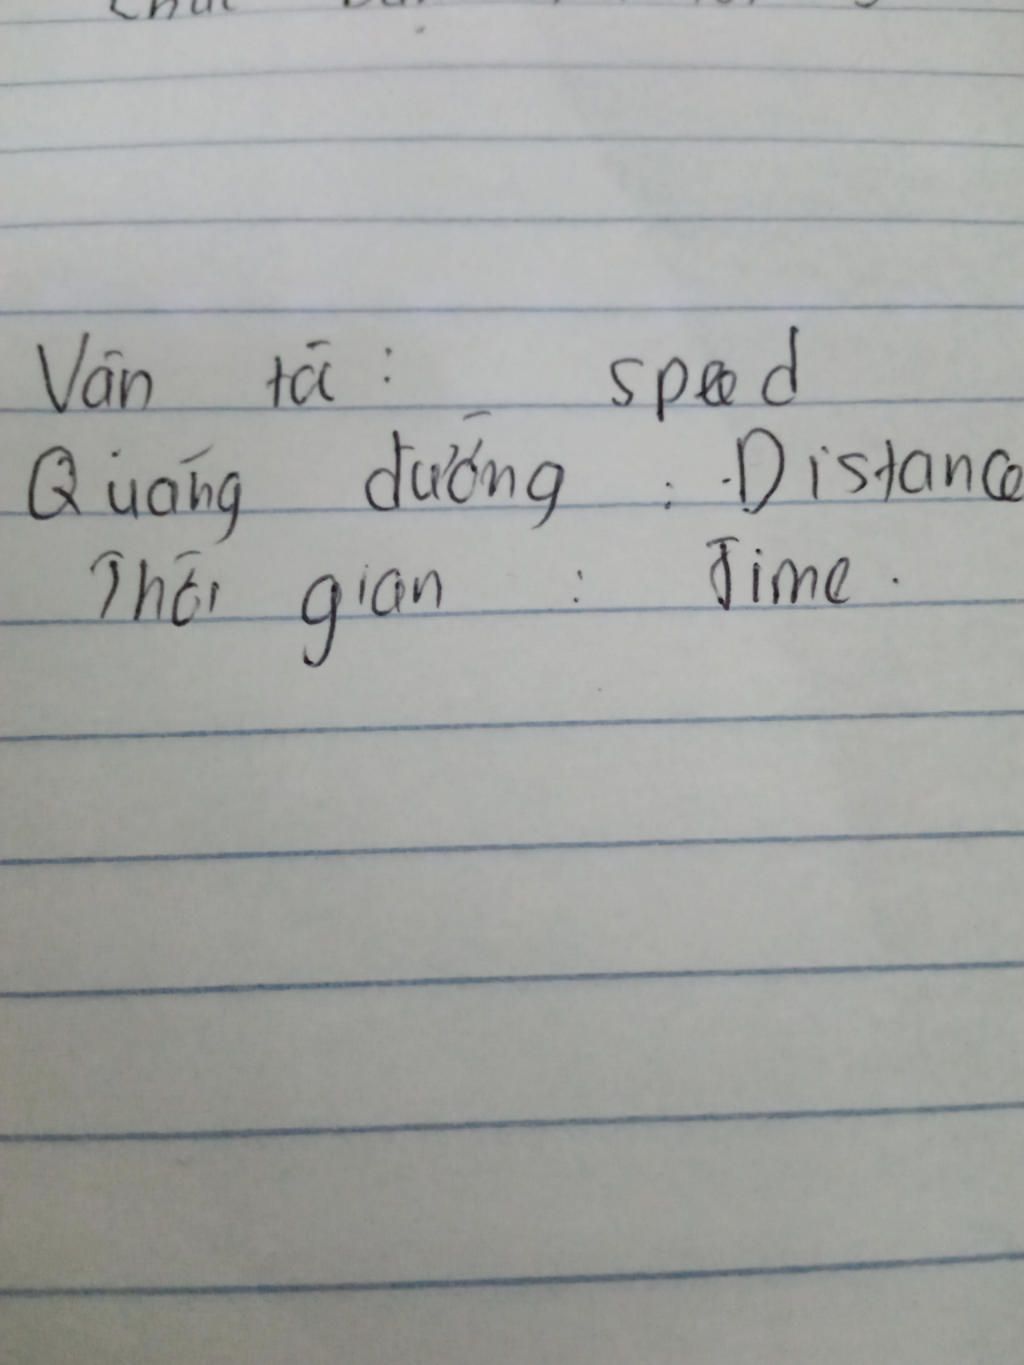 Vān tā : speed
Quāng đường : Distance
Thời gian : Time.